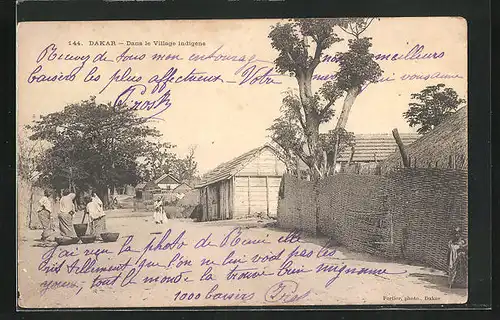 144. DAKAR – Dans le Village indigène
Recevez de tous mon entourage les meilleurs
baisers les plus affectueux – Votre qui vous aime
J'ai reçu la photo de Renée elle
est tellement que l'on ne lui voit pas les
yeux, tout le monde la trouve bien mignonne
1000 baisers
Fortier, photo, Dakar